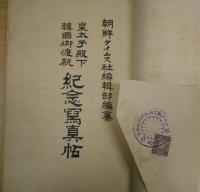 朝鮮タイムス社編輯部編纂
皇太子殿下
韓國御渡航
紀念寫真帖